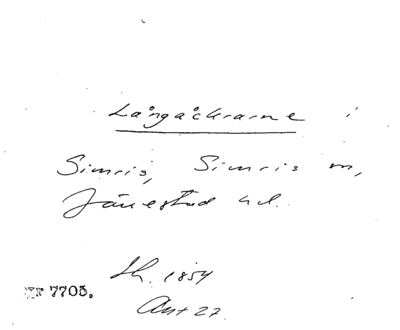 Långåckrarne i
Simris, Simris m,
Järrestad hd.
Sk. 1854
Ant 27
7705.